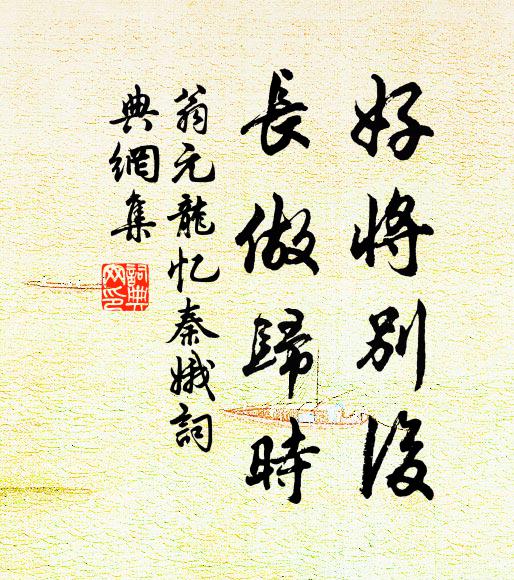 好將别後
長做歸時
翁元龍忆秦娥詞
典網集
詞典
网印